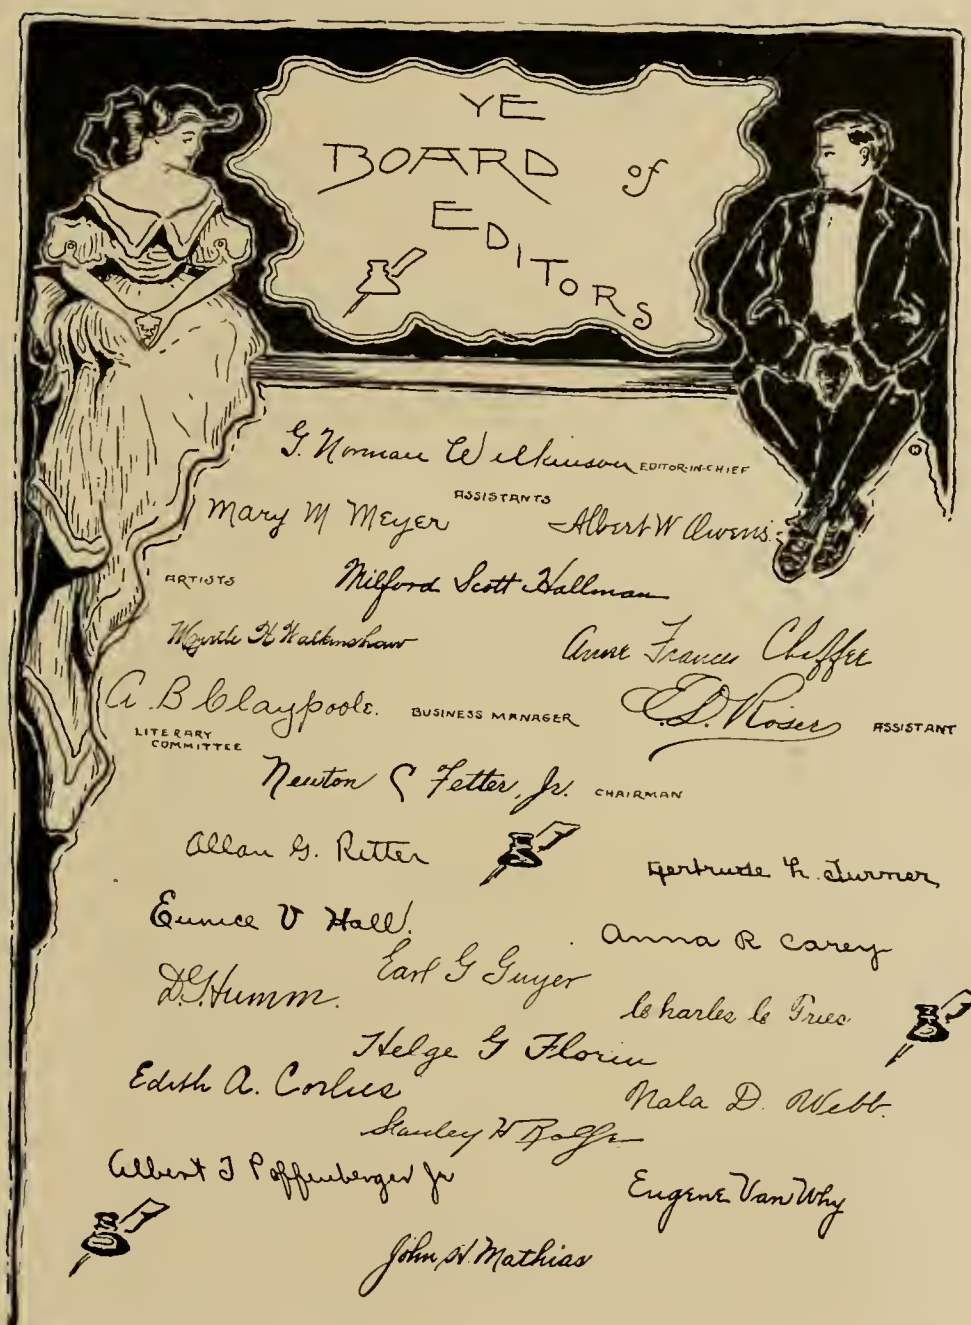 YE
BOARD of
EDITORS
G. Norman Wilkinson EDITOR-IN-CHIEF
ASSISTANTS
Mary M Meyer Albert W Owens.
ARTISTS Milford Scott Hallman
Myrtle H Walkinshaw Anne Frances Cheffee
A. B Claypoole. BUSINESS MANAGER E. D. Roser ASSISTANT
LITERARY
COMMITTEE
Newton C Fetter, Jr. CHAIRMAN
Allan G. Ritter Gertrude L. Turner
Eunice V Hall. Anna R Carey
D.G. Humm. Earl G Guyer Charles C
Helge G Florin
Edith A. Corlies Nala D. Webb.
Stanley H Rolfe
Albert T Poffenberger Jr Eugene Van Why
John H Mathias